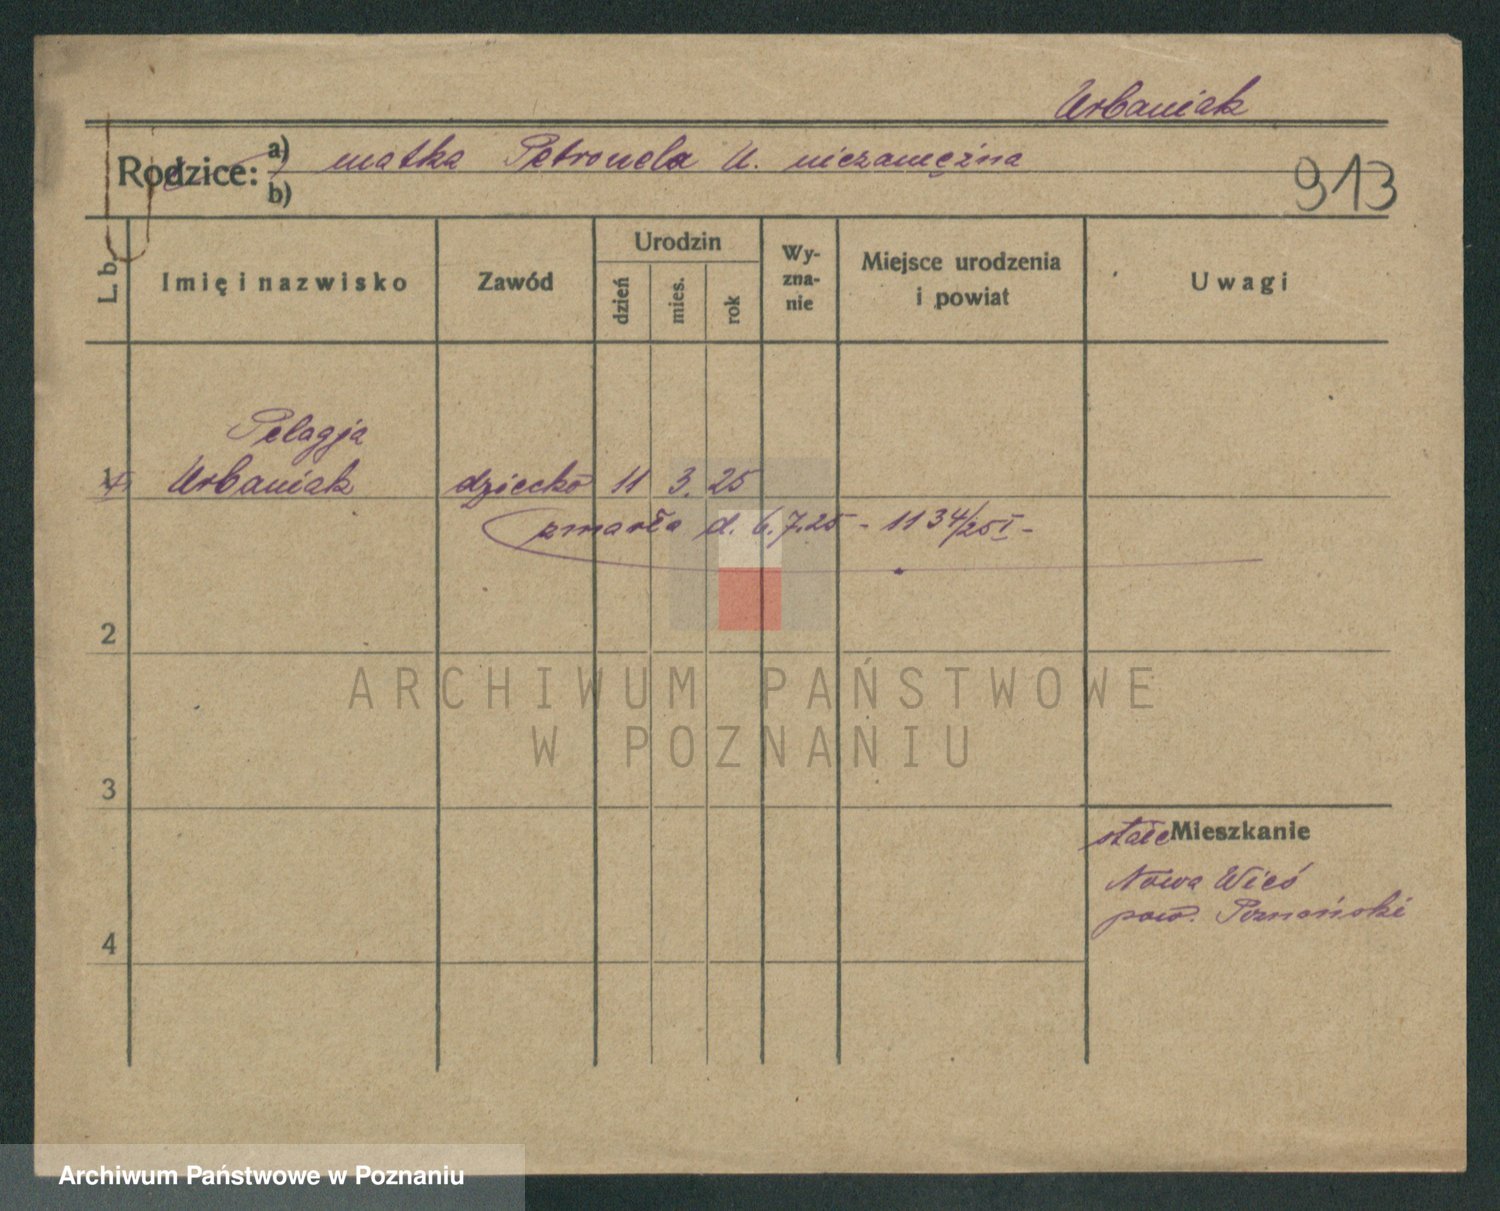 Urbaniak
Rodzice: a) matka Petronela U. niezamężna
b)
913
L. b.
Imię i nazwisko
Zawód
Urodzin
dzień
mies.
rok
Wy-
zna-
nie
Miejsce urodzenia
i powiat
Uwagi
Pelagja
1 Urbaniak dziecko 11 3. 25
zmarła d. 6.7.25 - 1134/25 I -
2
ARCHIWUM PAŃSTWOWE
W POZNANIU
3
stałe Mieszkanie
Nowa Wieś
pow. Poznański
4
Archiwum Państwowe w Poznaniu